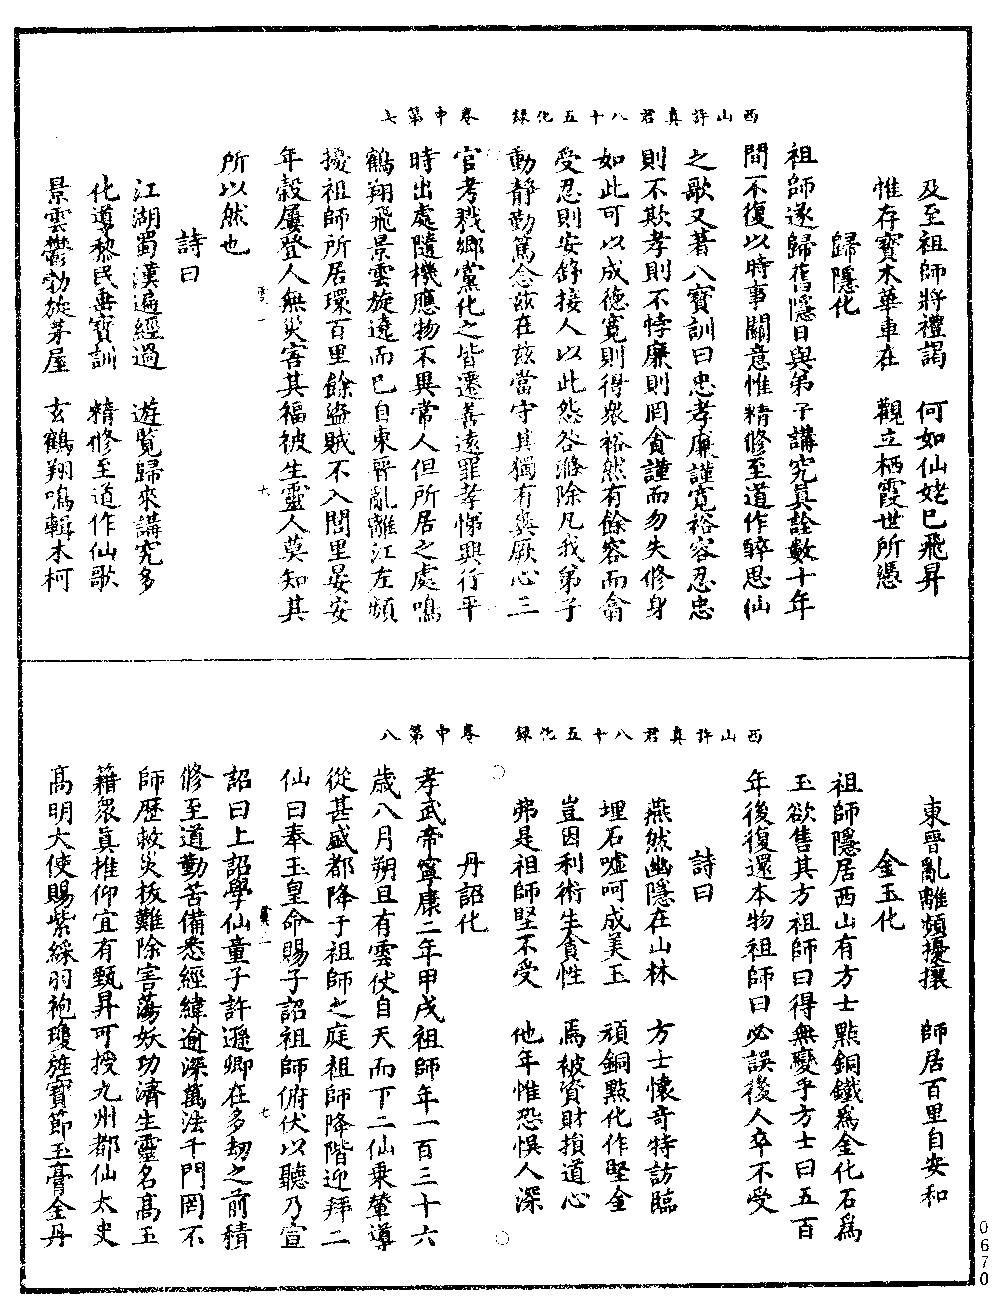 西山許真君八十五化錄　卷中第七
及至祖師將禮謁　何如仙姥已飛昇
惟存寶木華車在　觀立栖霞世所憑
歸隱化
祖師遂歸舊隱日與弟子講究真詮數十年
間不復以時事關意惟精修至道作醉思仙
之歌又著八寶訓曰忠孝廉謹寬裕容忍忠
則不欺孝則不悖廉則罔貪謹而勿失修身
如此可以成德寬則得衆裕然有餘容而翕
受忍則安舒接人以此怨咎滌除凡我弟子
動靜勤篤念茲在茲當守其獨有奧厥心三
官考戮鄉黨化之皆遷善遠罪孝悌興行平
時出處隨機應物不異常人但所居之處鳴
鶴翔飛景雲旋遶而已自東晉亂離江左頻
擾祖師所居環百里餘盜賊不入閭里晏安
年穀屢登人無災害其福被生靈人莫知其
所以然也
詩曰
江湖蜀漢遍經過　遊覧歸來講究多
化導黎民垂寶訓　精修至道作仙歌
景雲鬱勃旋茅屋　玄鶴翔鳴輯木柯
西山許真君八十五化錄　卷中第八
東晉亂離頻擾攘　師居百里自安和
金玉化
祖師隱居西山有方士點銅鐵爲金化石爲
玉欲售其方祖師曰得無變乎方士曰五百
年後復還本物祖師曰必誤後人卒不受
詩曰
燕然幽隱在山林　方士懷奇特訪臨
埋石噓呵成美玉　頑銅點化作堅金
豈因利術生貪性　焉被資財損道心
弗是祖師堅不受　他年惟恐悞人深
丹詔化
孝武帝寧康二年甲戌祖師年一百三十六
歲八月朔旦有雲仗自天而下二仙乘輦導
從甚盛都降于祖師之庭祖師降階迎拜二
仙曰奉玉皇命賜子詔祖師俯伏以聽乃宣
詔曰上詔學仙童子許遜卿在多劫之前積
修至道勤苦備悉經緯逾深萬法千門罔不
師歷救災拔難除害蕩妖功濟生靈名高玉
籍衆真推仰宜有甄昇可授九州都仙太史
高明大使賜紫綵羽袍瓊旌寶節玉膏金丹
0670